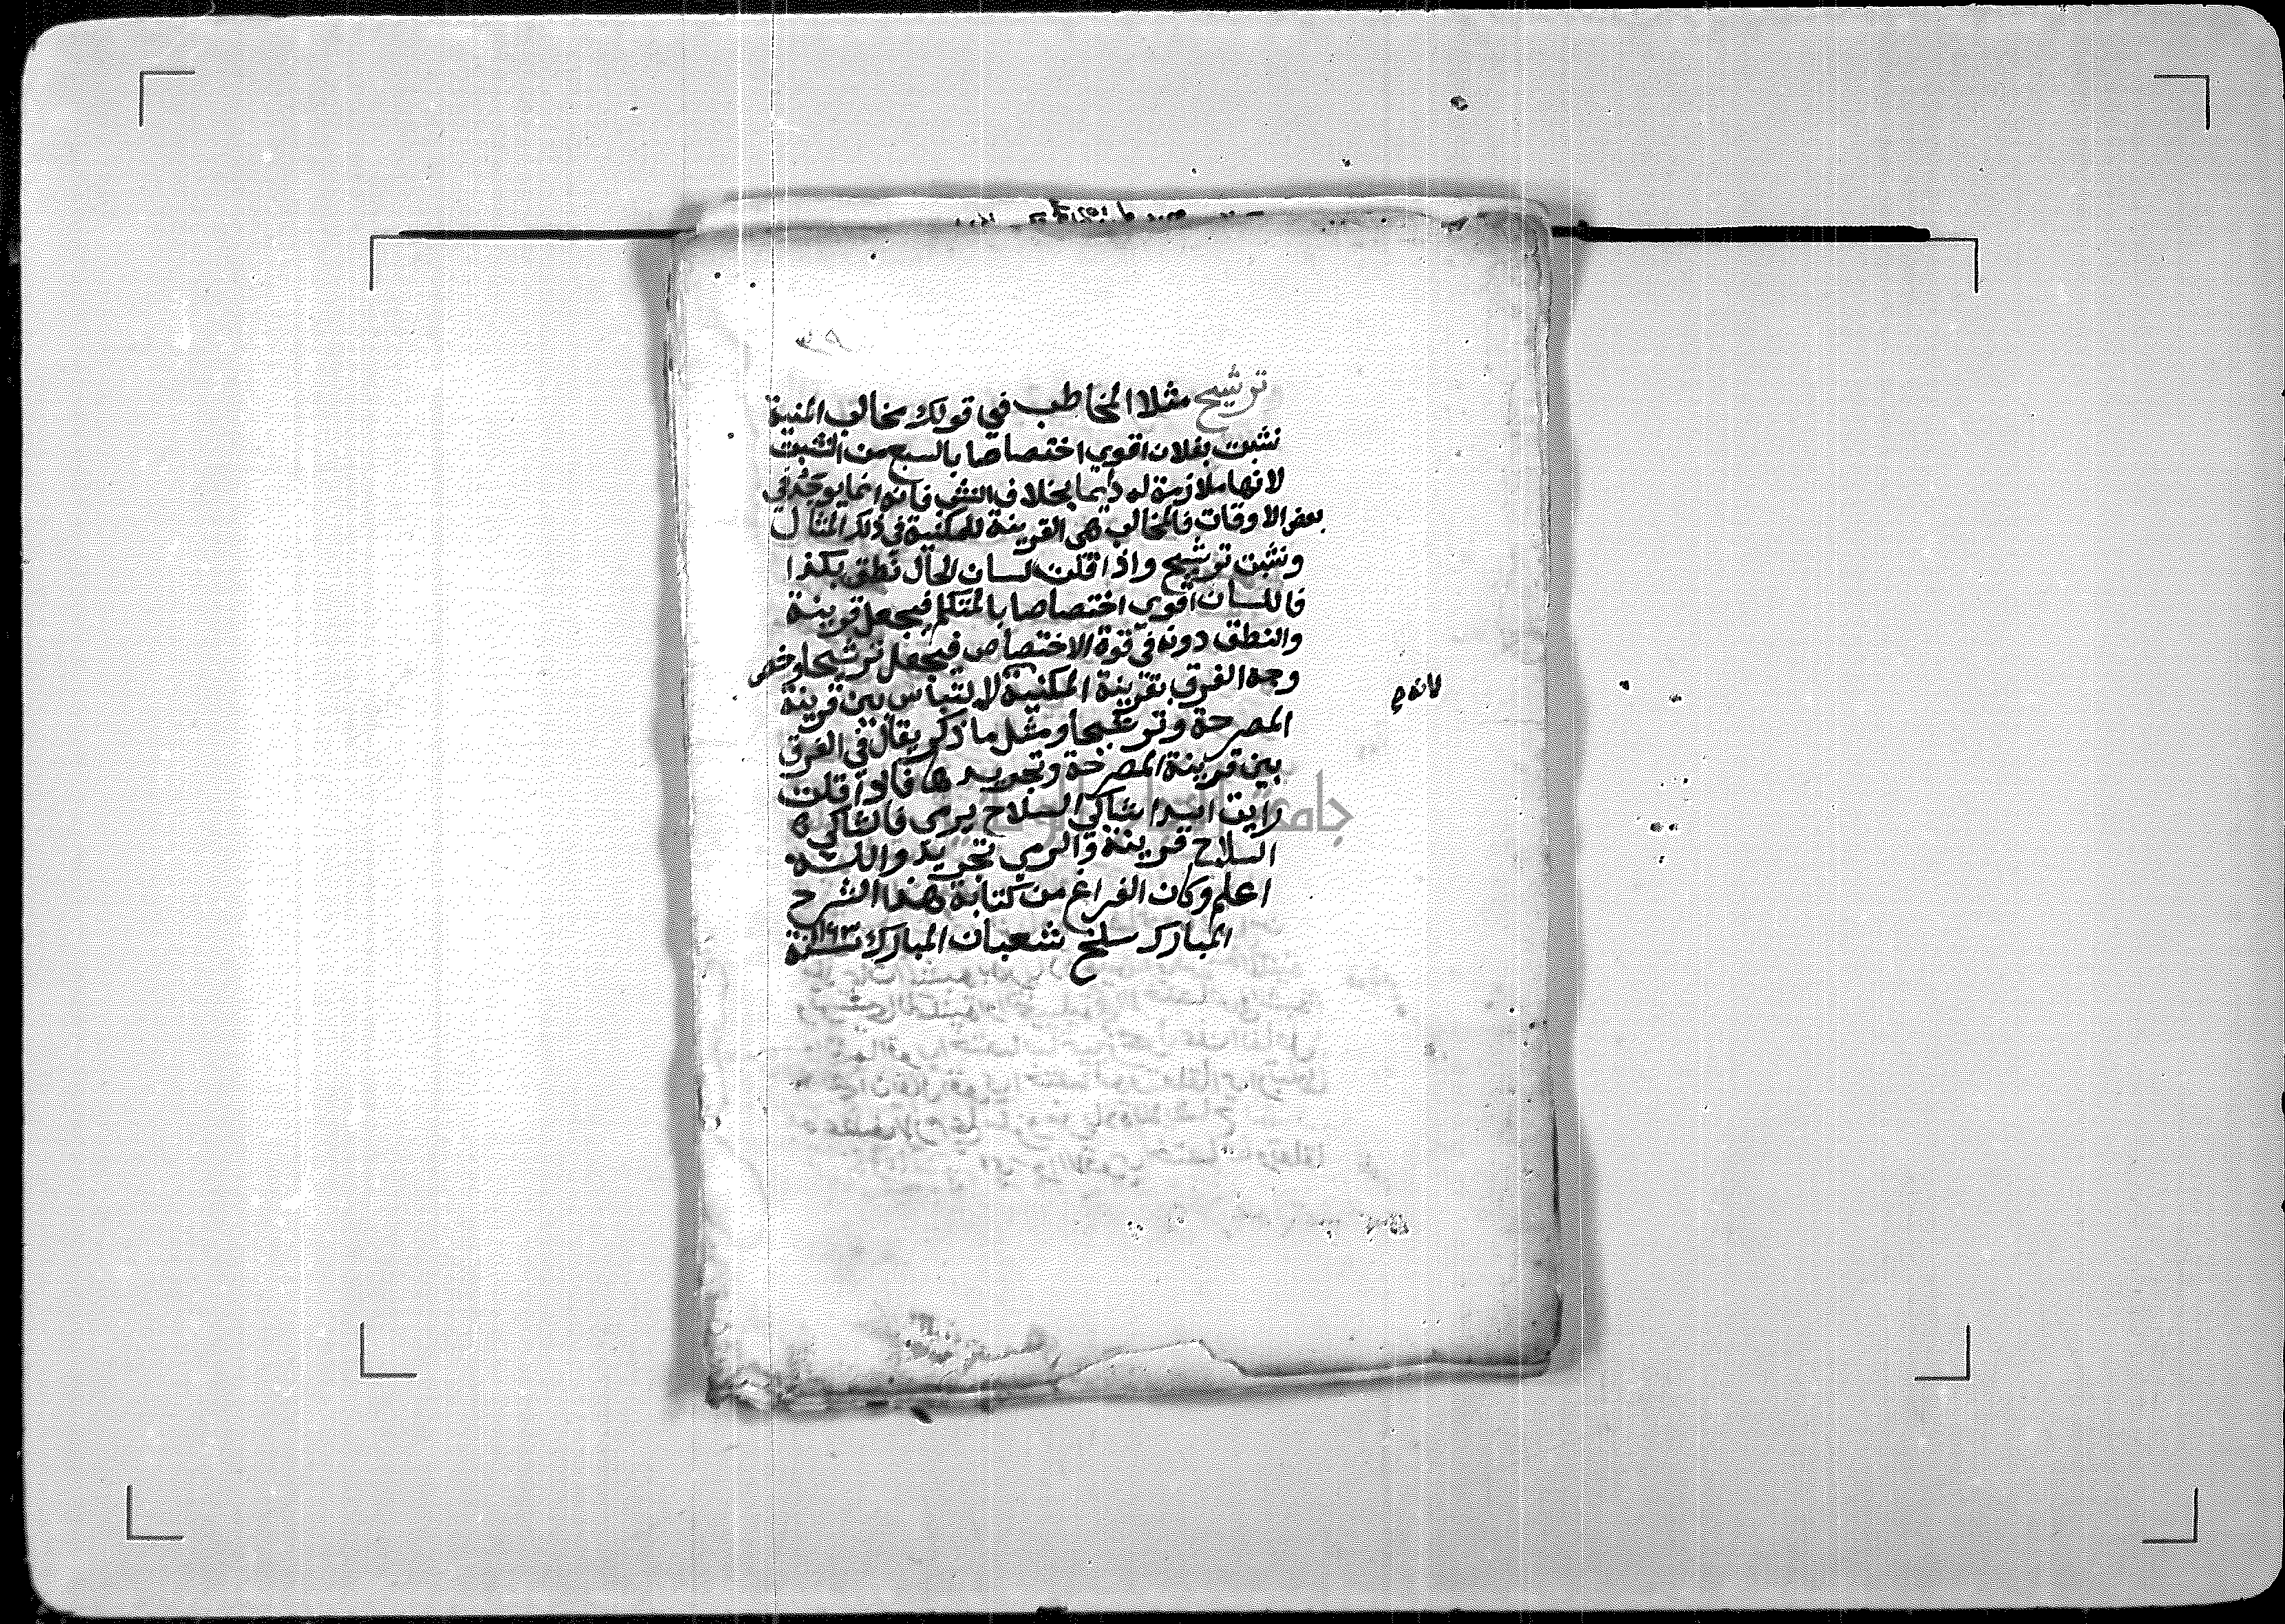 ترشيح مثلا المخاطب في قولك مخالب المنية
نشبت بفلان اقوي اختصاصا بالسبع من النشبت
لانها ملازمة له دائما بخلاف النشب فانه انما يوجد في
بعض الاوقات فالمخالب هي القرينة للمكنية في ذلك المثال
ونشبت ترشيح واذا قلت لسان الحال نطق بكذا
فاللسان اقوي اختصاصا بالمتكلم فيجعل قرينة
والنطق دونه في قوة الاختصاص فيجعل ترشيحا وخص
وجه الفرق بقرينة المكنية لالتباس بين قرينة
لانه
المصرحة وترشيحها ومثل ما ذكر يقال في الفرق
بين قرينة المصرحة وتجريدها فاذا قلت
رايت اسدا شاكي السلاح يرمي فاشاكي
السلاح قرينة والرمي تجريد والله
اعلم وكان الفراغ من كتابة هذا الشرح
المبارك سلخ شعبان المبارك سنة